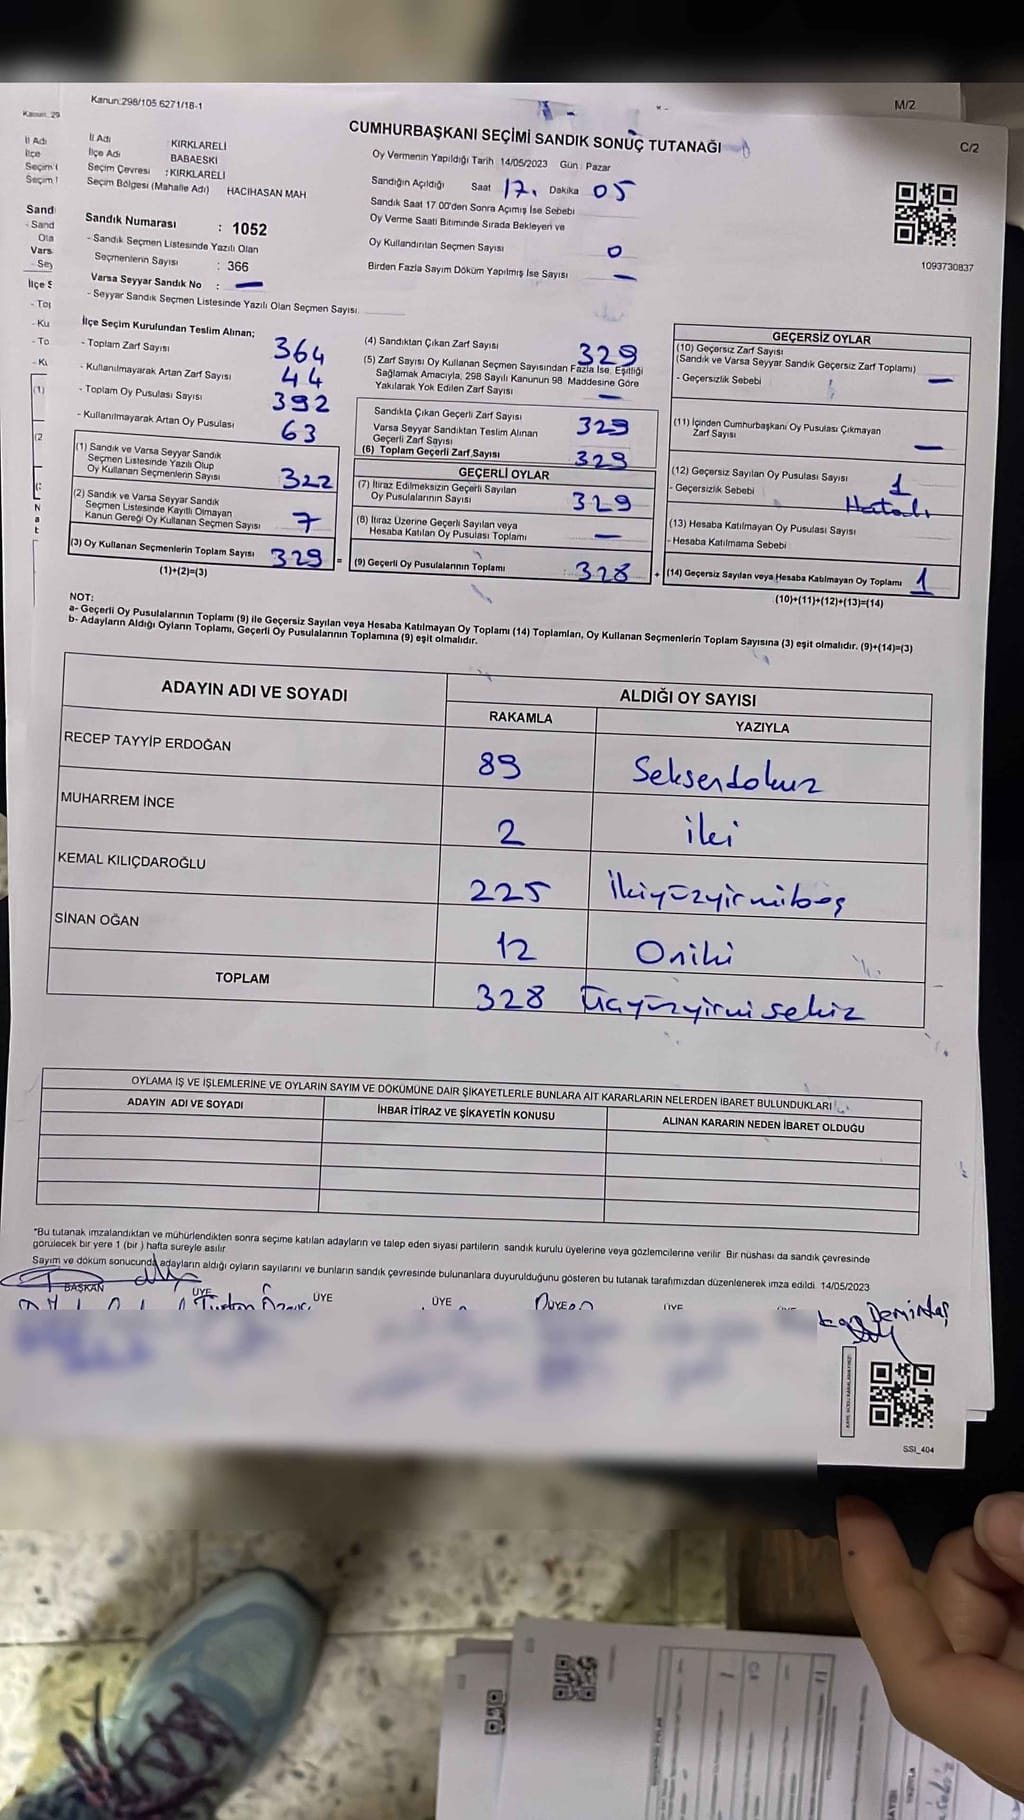 Kanun:298/105 6271/18-1
M/2
C/2
CUMHURBAŞKANI SEÇİMİ SANDIK SONUÇ TUTANAĞI
İl Adı KIRKLARELİ
İlçe Adı BABAESKİ
Seçim Çevresi : KIRKLARELİ
Seçim Bölgesi (Mahalle Adı) HACIHASAN MAH
Sandık Numarası : 1052
- Sandık Seçmen Listesinde Yazılı Olan
Seçmenlerin Sayısı : 366
Varsa Seyyar Sandık No : —
- Seyyar Sandık Seçmen Listesinde Yazılı Olan Seçmen Sayısı.
Oy Vermenin Yapıldığı Tarih 14/05/2023 Gün Pazar
Sandığın Açıldığı Saat 17. Dakika 05
Sandık Saat 17 00'den Sonra Açımış İse Sebebi
Oy Verme Saati Bitiminde Sırada Bekleyen ve
Oy Kullandırılan Seçmen Sayısı 0
Birden Fazla Sayım Döküm Yapılmış İse Sayısı —
1093730837
İlçe Seçim Kurulundan Teslim Alınan;
- Toplam Zarf Sayısı 364
- Kullanılmayarak Artan Zarf Sayısı 44
- Toplam Oy Pusulası Sayısı 392
- Kullanılmayarak Artan Oy Pusulası 63
(1) Sandık ve Varsa Seyyar Sandık
Seçmen Listesinde Yazılı Olup
Oy Kullanan Seçmenlerin Sayısı 322
(2) Sandık ve Varsa Seyyar Sandık
Seçmen Listesinde Kayıtlı Olmayan
Kanun Gereği Oy Kullanan Seçmen Sayısı 7
(3) Oy Kullanan Seçmenlerin Toplam Sayısı 329 =
(1)+(2)=(3)
(4) Sandıktan Çıkan Zarf Sayısı 329
(5) Zarf Sayısı Oy Kullanan Seçmen Sayısından Fazla İse, Eşitliği
Sağlamak Amacıyla, 298 Sayılı Kanunun 98 Maddesine Göre
Yakılarak Yok Edilen Zarf Sayısı —
Sandıkta Çıkan Geçerli Zarf Sayısı 329
Varsa Seyyar Sandıktan Teslim Alınan
Geçerli Zarf Sayısı
(6) Toplam Geçerli Zarf Sayısı 329
GEÇERLİ OYLAR
(7) İtiraz Edilmeksizin Geçerli Sayılan
Oy Pusulalarının Sayısı 329
(8) İtiraz Üzerine Geçerli Sayılan veya
Hesaba Katılan Oy Pusulası Toplamı —
(9) Geçerli Oy Pusulalarının Toplamı : 328 +
GEÇERSİZ OYLAR
(10) Geçersiz Zarf Sayısı
(Sandık ve Varsa Seyyar Sandık Geçersiz Zarf Toplamı)
- Geçersizlik Sebebi —
(11) İçinden Cumhurbaşkanı Oy Pusulası Çıkmayan
Zarf Sayısı —
(12) Geçersiz Sayılan Oy Pusulası Sayısı 1
- Geçersizlik Sebebi Hatalı
(13) Hesaba Katılmayan Oy Pusulası Sayısı
- Hesaba Katılmama Sebebi
(14) Geçersiz Sayılan veya Hesaba Katılmayan Oy Toplamı 1
(10)+(11)+(12)+(13)=(14)
NOT:
a- Geçerli Oy Pusulalarının Toplamı (9) ile Geçersiz Sayılan veya Hesaba Katılmayan Oy Toplamı (14) Toplamları, Oy Kullanan Seçmenlerin Toplam Sayısına (3) eşit olmalıdır. (9)+(14)=(3)
b- Adayların Aldığı Oyların Toplamı, Geçerli Oy Pusulalarının Toplamına (9) eşit olmalıdır.
ADAYIN ADI VE SOYADI ALDIĞI OY SAYISI
RAKAMLA YAZIYLA
RECEP TAYYİP ERDOĞAN 89 Seksendokuz
MUHARREM İNCE 2 iki
KEMAL KILIÇDAROĞLU 225 İkiyüzyirmibeş
SİNAN OĞAN 12 Oniki
TOPLAM 328 Üçyüzyirmisekiz
OYLAMA İŞ VE İŞLEMLERİNE VE OYLARIN SAYIM VE DÖKÜMÜNE DAİR ŞİKAYETLERLE BUNLARA AİT KARARLARIN NELERDEN İBARET BULUNDUKLARI
ADAYIN ADI VE SOYADI İHBAR İTİRAZ VE ŞİKAYETİN KONUSU ALINAN KARARIN NEDEN İBARET OLDUĞU
*Bu tutanak imzalandıktan ve mühürlendikten sonra seçime katılan adayların ve talep eden siyasi partilerin sandık kurulu üyelerine veya gözlemcilerine verilir Bir nüshası da sandık çevresinde
görülecek bir yere 1 (bir ) hafta süreyle asılır
Sayım ve döküm sonucunda adayların aldığı oyların sayılarını ve bunların sandık çevresinde bulunanlara duyurulduğunu gösteren bu tutanak tarafımızdan düzenlenerek imza edildi. 14/05/2023
BAŞKAN ÜYE ÜYE ÜYE ÜYE ÜYE
Demirtaş
SSI_404